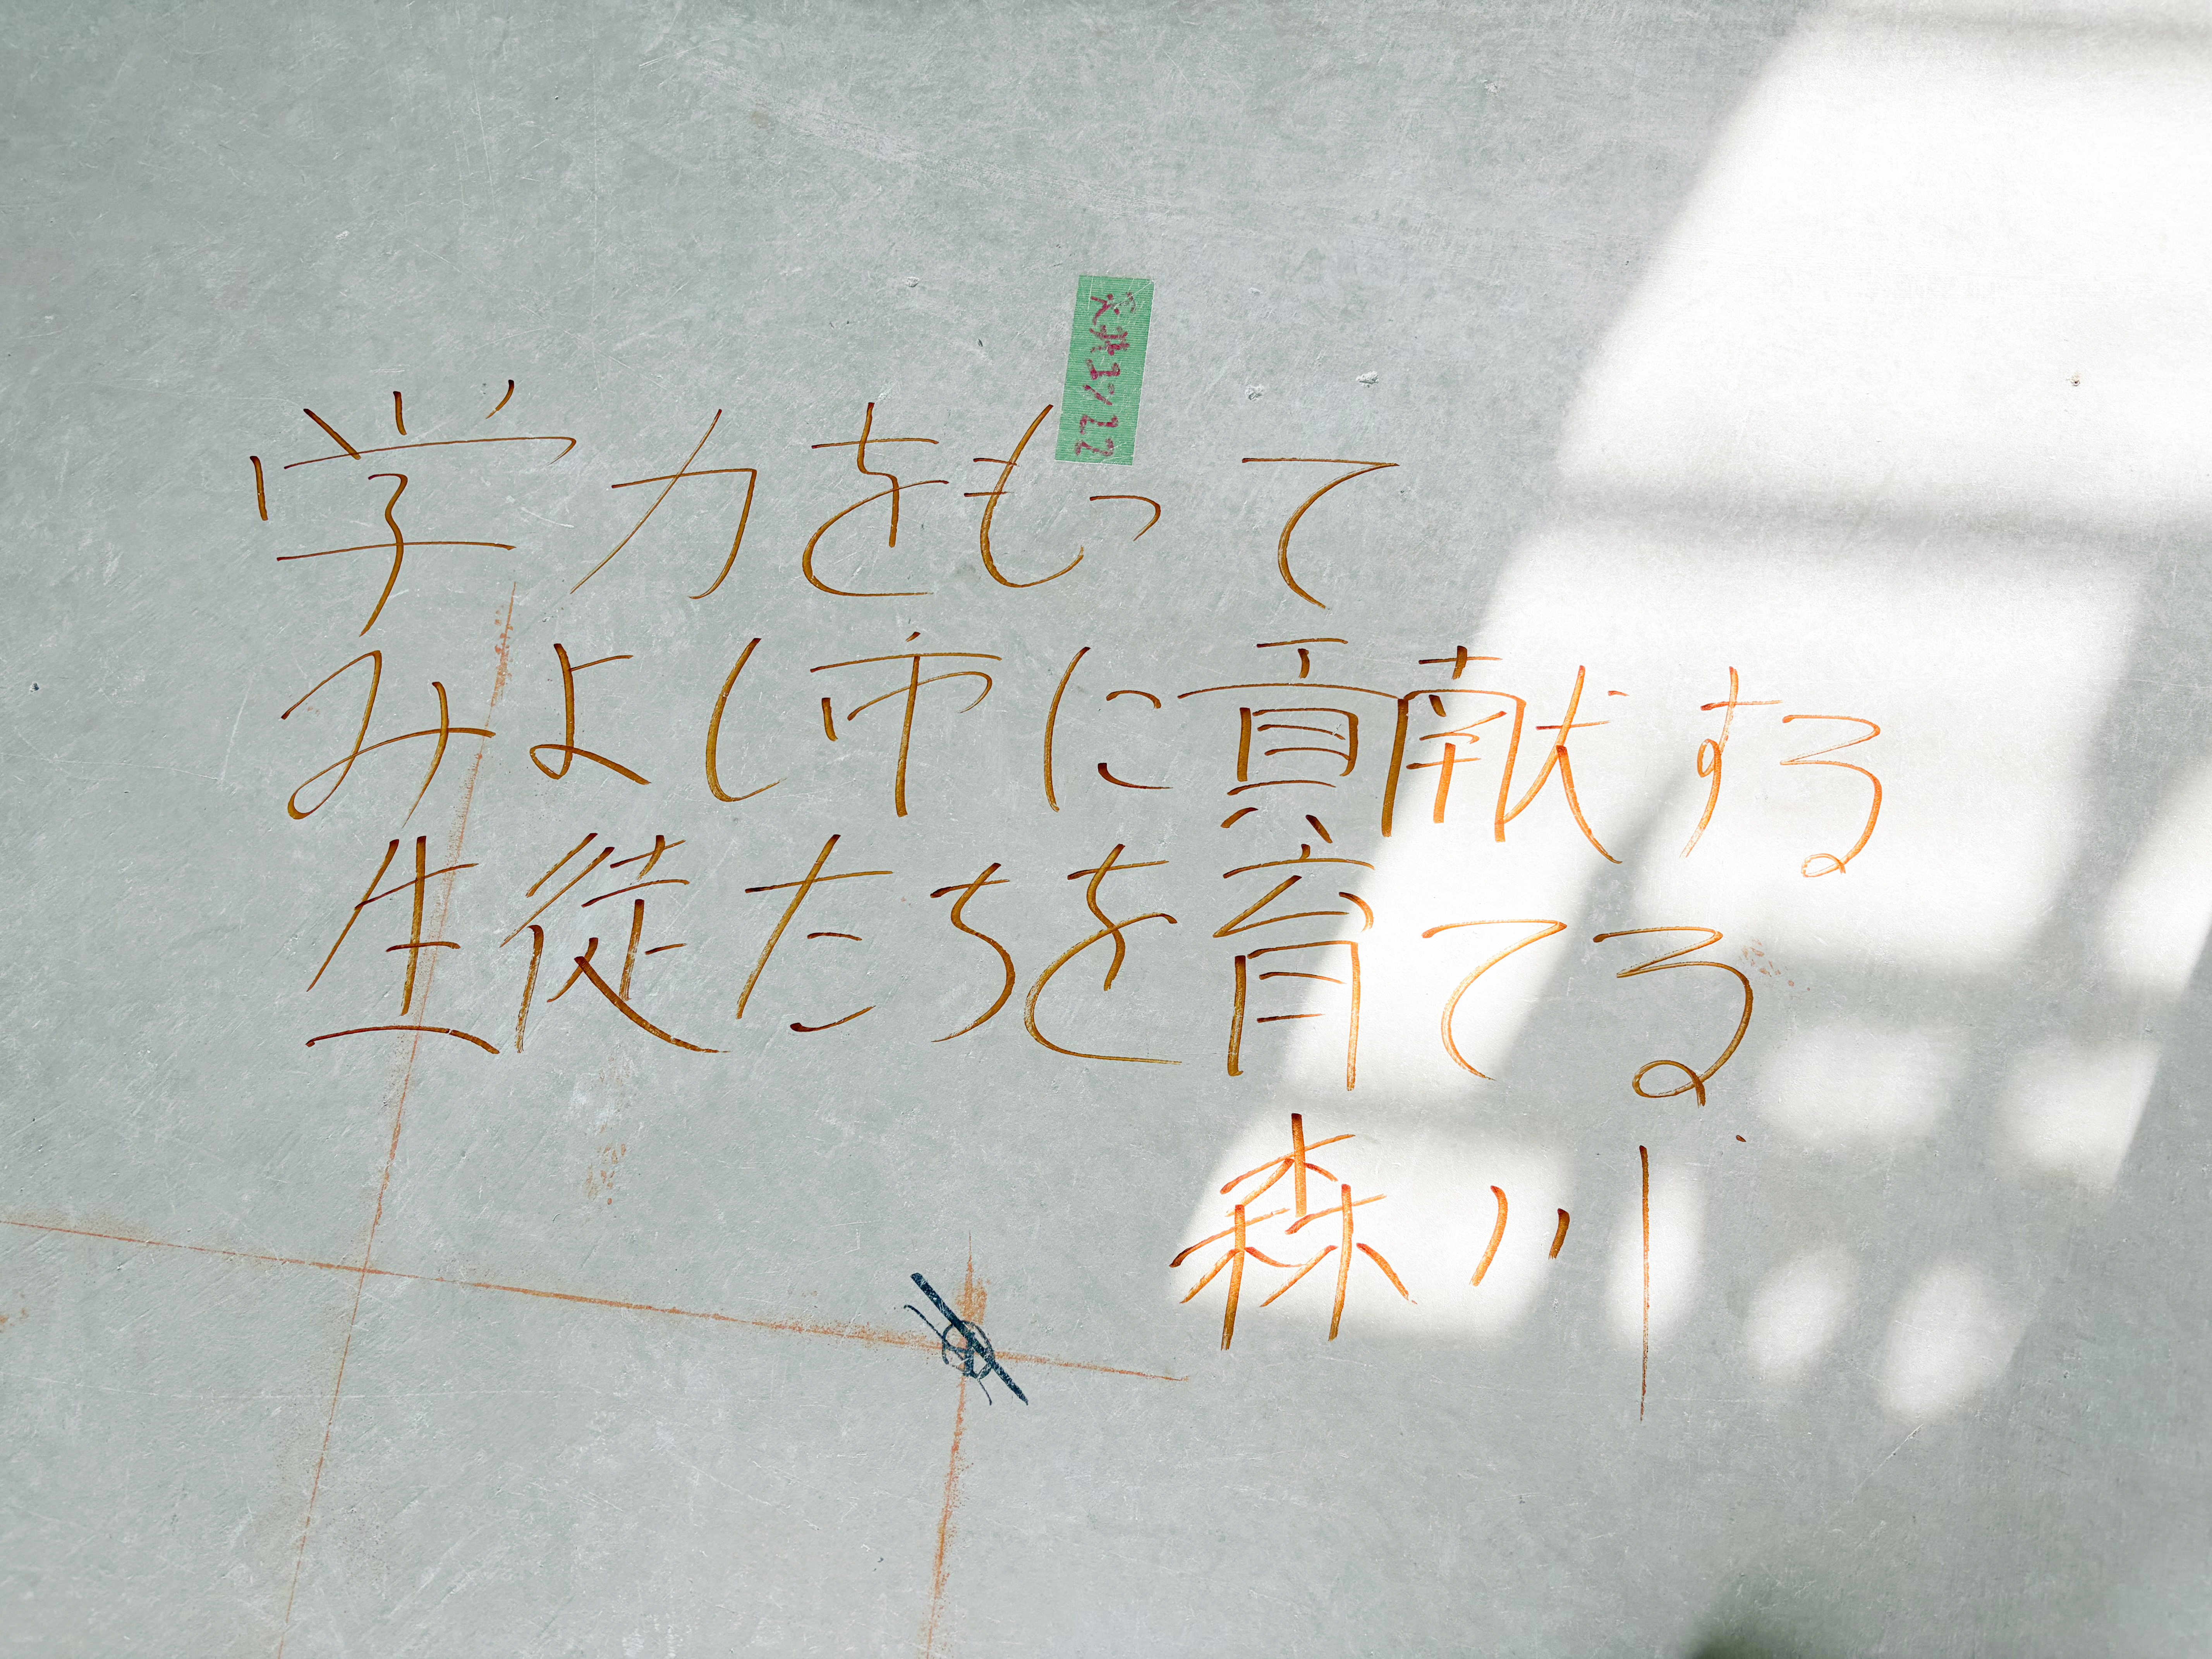 学力をもって
みよし市に貢献する
生徒たちを育てる
森川